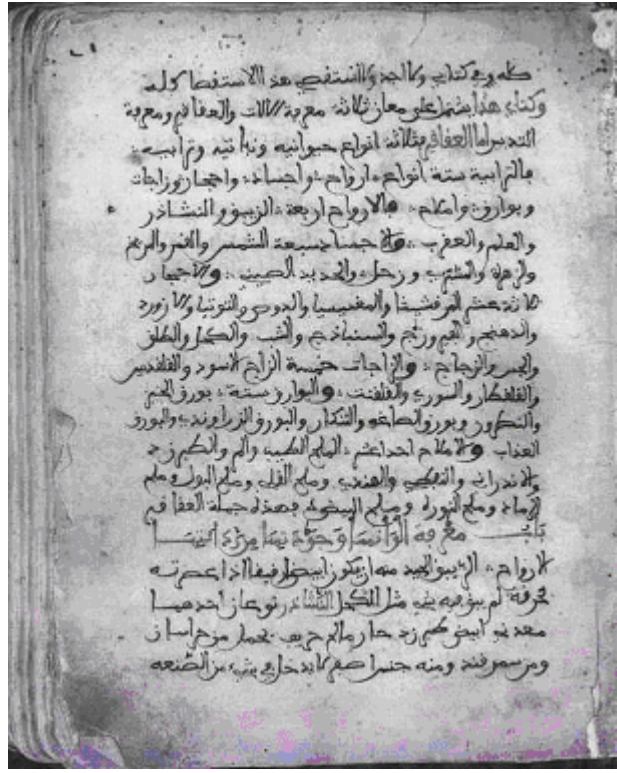 كله وفى كتاب ولا احد ولا استقصى هذا الاستقصا كله
وكتابى هذا يشتمل على معان ثلاثة معرفة الالات والعقاقير ومعرفة
التدبير اما العقاقير فثلاثة انواع حيوانيه ونباتيه وترابيه
فالترابية ستة انواع ارواح واجساد واحجار وزاجات
وبوارق واملاح فالارواح اربعة الزيبق والنشاذر
والعلم والعقرب والاجساد سبعة الشمس والقمر والمريخ
والزهرة والمشترى وزحل والحديد الصينى والاحجار
ثلاثة عشر المرقشيثا والمغنيسيا والدوص والتوتيا والازورد
والدهنج والفيروزج والسنباذج والشب والكحل والطلق
والجبس والزجاج والزاجات خمسة الزاج الاسود والقلقديس
والقلقطار والسورى والقلقنت والبوارق ستة بورق الخبز
والنطرون وبورق الصاغه والتنكار والبورق الزراوندى والبورق
والاملاح احد عشر الملح الطيب والمر والطبرزد
والاندرانى والنفطى والهندى وملح القلى وملح البول وملح
الرماد وملح النورة وملح البيض فهذه جملة العقاقير
باب معرفة الوانها وجودتها من رديئها
الارواح الزيبق الجيد منه ان يكون ابيض رقيقا اذا عصرته
بخرقة لم يبق فيه شى مثل الكحل النشاذر نوعان احدهما
معدنى ابيض طبرزد حار مالح حريف يحمل من خراسان
ومن سمرقند ومنه جنس اصفر لا يدخل فى شى من الصنعه